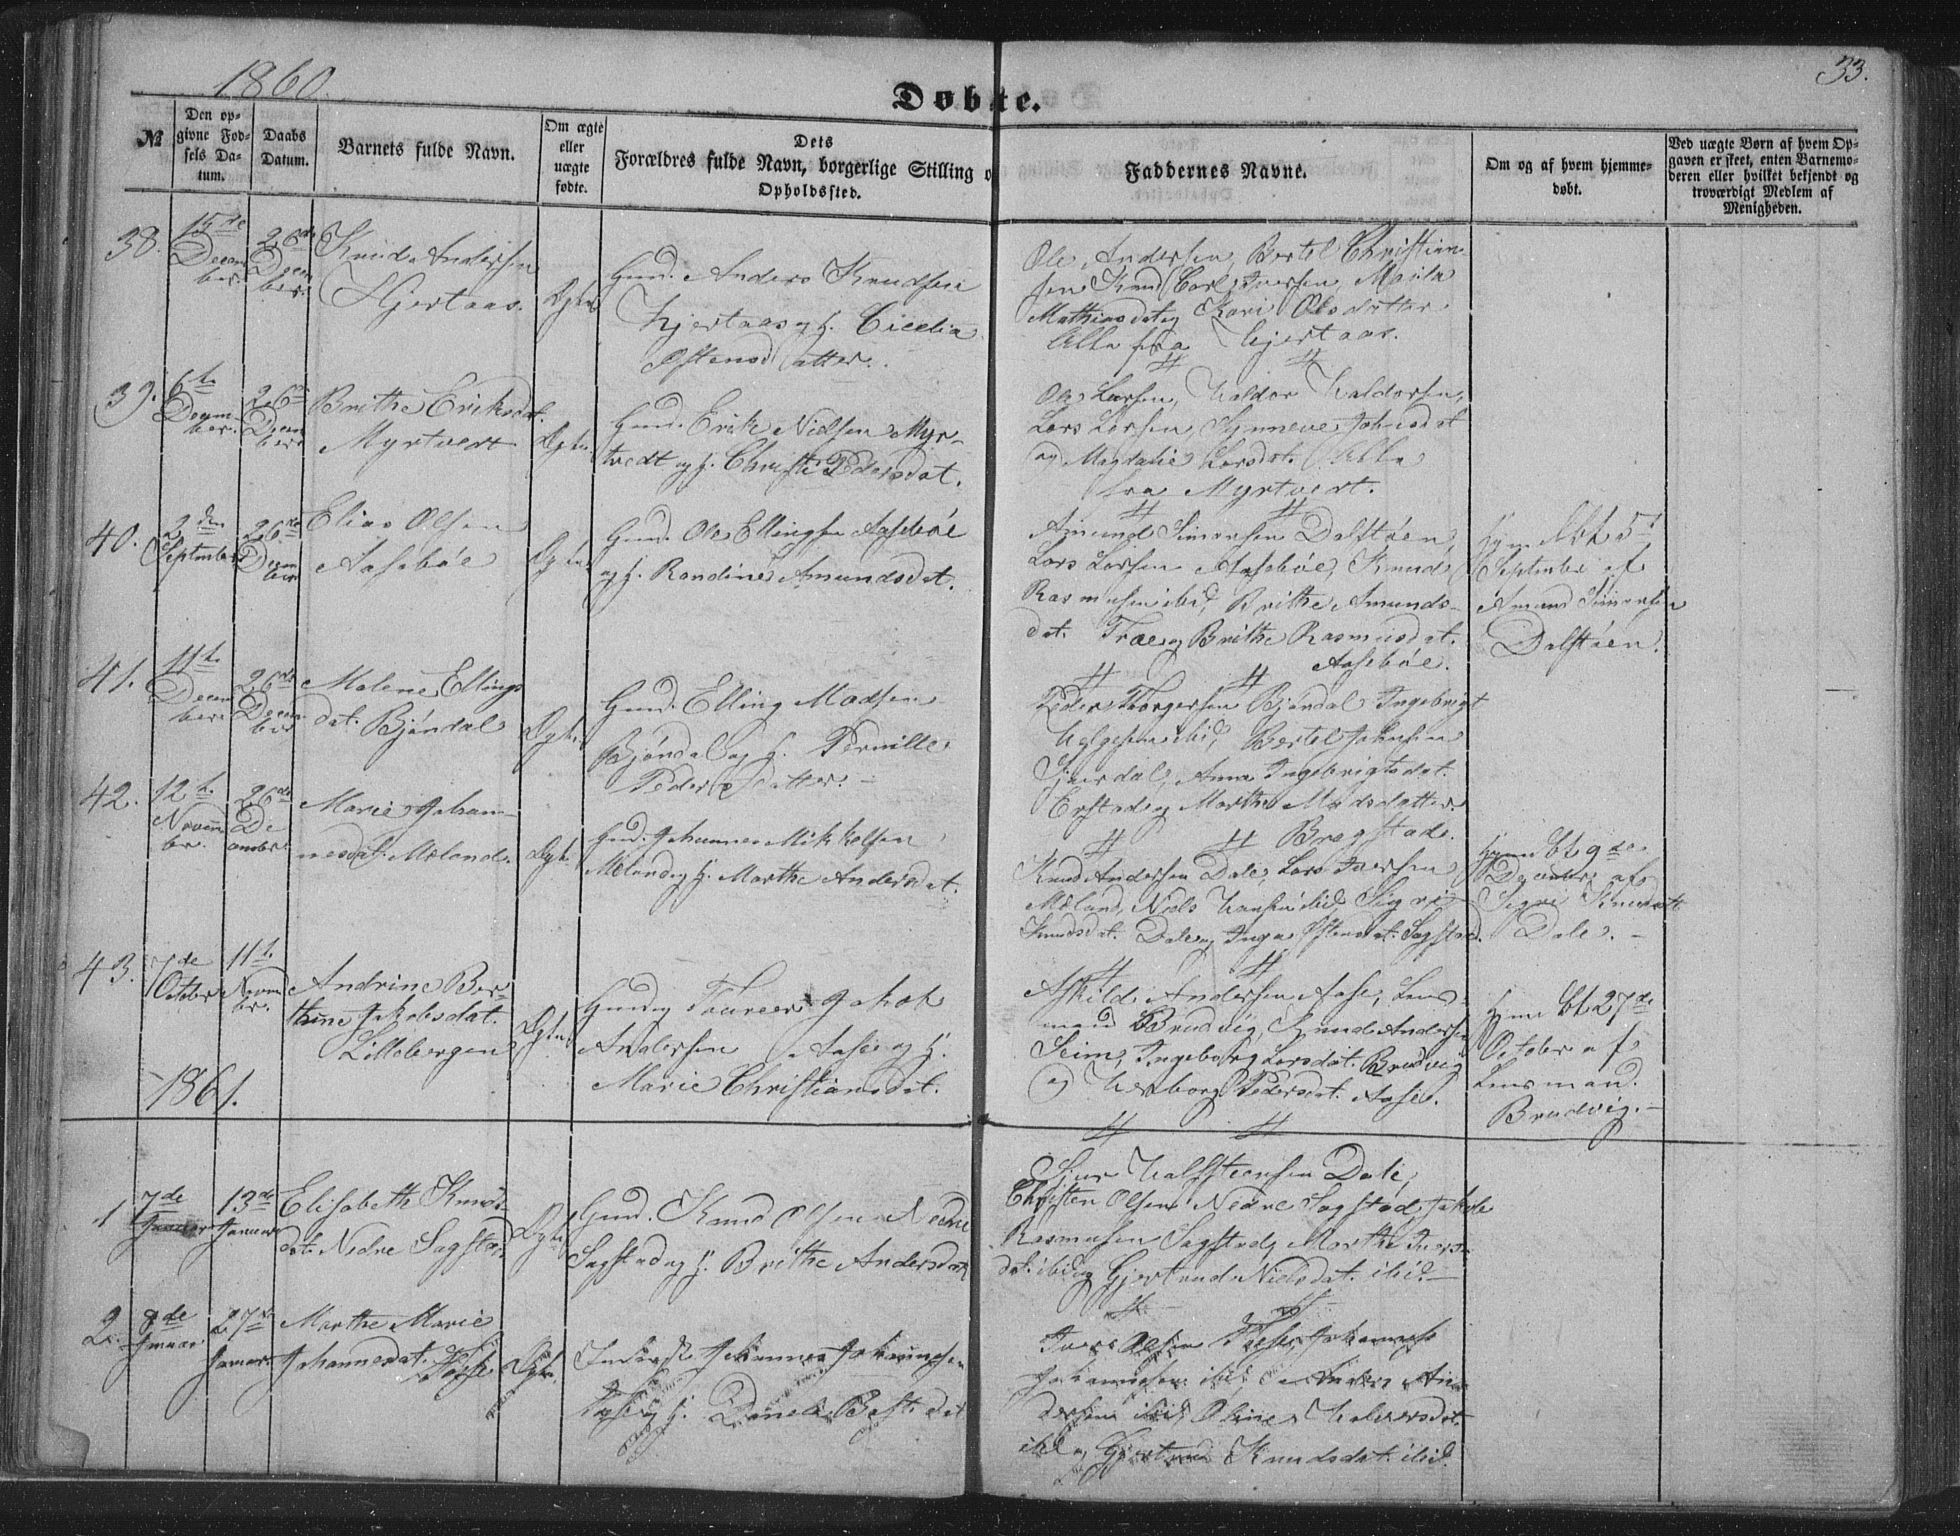 1860.
33.
Døbte.
№
Den op-
givne Fød-
sels Da-
tum.
Daabs
Datum.
Barnets fulde Navn.
Om ægte
eller
uægte
fødte.
Dets
Forældres fulde Navn, borgerlige Stilling o
Opholdssted.
Faddernes Navne.
Om og af hvem hjemme-
døbt.
Ved uægte Børn af hvem Op-
gaven er skeet, enten Barnemo-
deren eller hvilket bekjendt og
troværdigt Medlem af
Menigheden.
38.
15de
Decem
ber.
26de
Decem
ber.
Knud Andersen
Hjertaas.
Ægte
Gmd. Anders Knudsen
Hjertaas og H. Cicelia
Ostensdatter.
Ole Andersen, Bertel Christian-
sen Knud Carl Iversen, Marita
Mathiasdat og Kari Olsdatter
Alle fra Hjertaas.
39.
6te
Decem-
ber.
26de
Decem
ber
Brithe Eriksdat.
Myrtvedt
Ægte.
Gmd. Erik Nielsen Myr-
tvedt og H. Christi Pedersdat.
Ole Larsen, Haldor Haldorsen,
Lars Larsen, Synneve Johnsdat
og Magdalie Larsdat. Alle
fra Myrtvedt.
40.
2den
September
26de
Decem
ber
Elias Olsen
Aasebøe
Ægte
Gmd. Ole Ellingsen Aasebøe
og H. Randine Amundsdat.
Amund Simonsen Dalstøen
Lars Larsen Aasebøe, Knud
Rasmusen ibid, Brithe Amunds-
dat. Fræe og Brithe Rasmusdat.
Aasebøe.
Hjemdøbt 5te
September af
Amund Simonsen
Dalstøen.
41.
11te
Decem
ber.
26de
Decem
ber
Malene Ellings
dat. Bjøndal
Ægte.
Gmd. Elling Madsen
Bjøndal og H. Pernille
Pedersdatter.
Peder Torgersen Bjøndal Ingebrigt
Helgesen ibid, Bertel Johnsen
Gjerdal, Anna Ingebrigtsdat.
Erstad og Marthe Madsdatter
Brægstad.
42.
12te
Novem
br.
26de
De
cember.
Marie Johan-
nesdat. Mæland.
Ægte.
Gmd. Johannes Mikkelsen
Mæland og H. Marthe Andersdat.
Knud Andersen Dale, Lars Iversen
Mæland, Niels Hansen ibid, Sigri
Knudsdat. Dale og Inga Ostensdat. Sagstad.
Hjemdøbt 9de
December af
Sigri Knudsdt
Dale.
43.
7de
October
11te
Novem
br.
Andrine Ber-
thine Jakobsdat.
Lillebergen
Ægte
Gmd og Snurer Jakob
Andersen Aase og H.
Marie Christiansdat.
Askild Andersen Aase, Lens-
mand Brudvig, Knud Andersen
Seim, Ingeborg Larsdat. Brudvig
og Herborg Pedersdat. Aase.
Hjemdøbt 27de
October af
Lensmand
Brudvig.
1861.
1
7de
Januar
13de
Januar
Elisabeth Knuds
dat. Nedre Sagstad
Ægte
Gmd. Knud Olsen Nedre
Sagstad og H. Brithe Andersdat
Sjur Halfsteensen Dale,
Christen Olsen Nedre Sagstad, Jakob
Rasmusen Sagstad, Marthe Ivers-
dat. ibid og Gjertrud Nielsdat. ibid.
2.
8de
Januar.
27de
Januar
Marthe Marie
Johannesdat.
Ægte.
Inderst Johannes Johannesen
og H.
Ivers Olsen Johannes
Johannesen ibid, Anders An-
dersen ibid, Oline Halversdat.
ibid og Gjertrud Knudsdat. ibid.